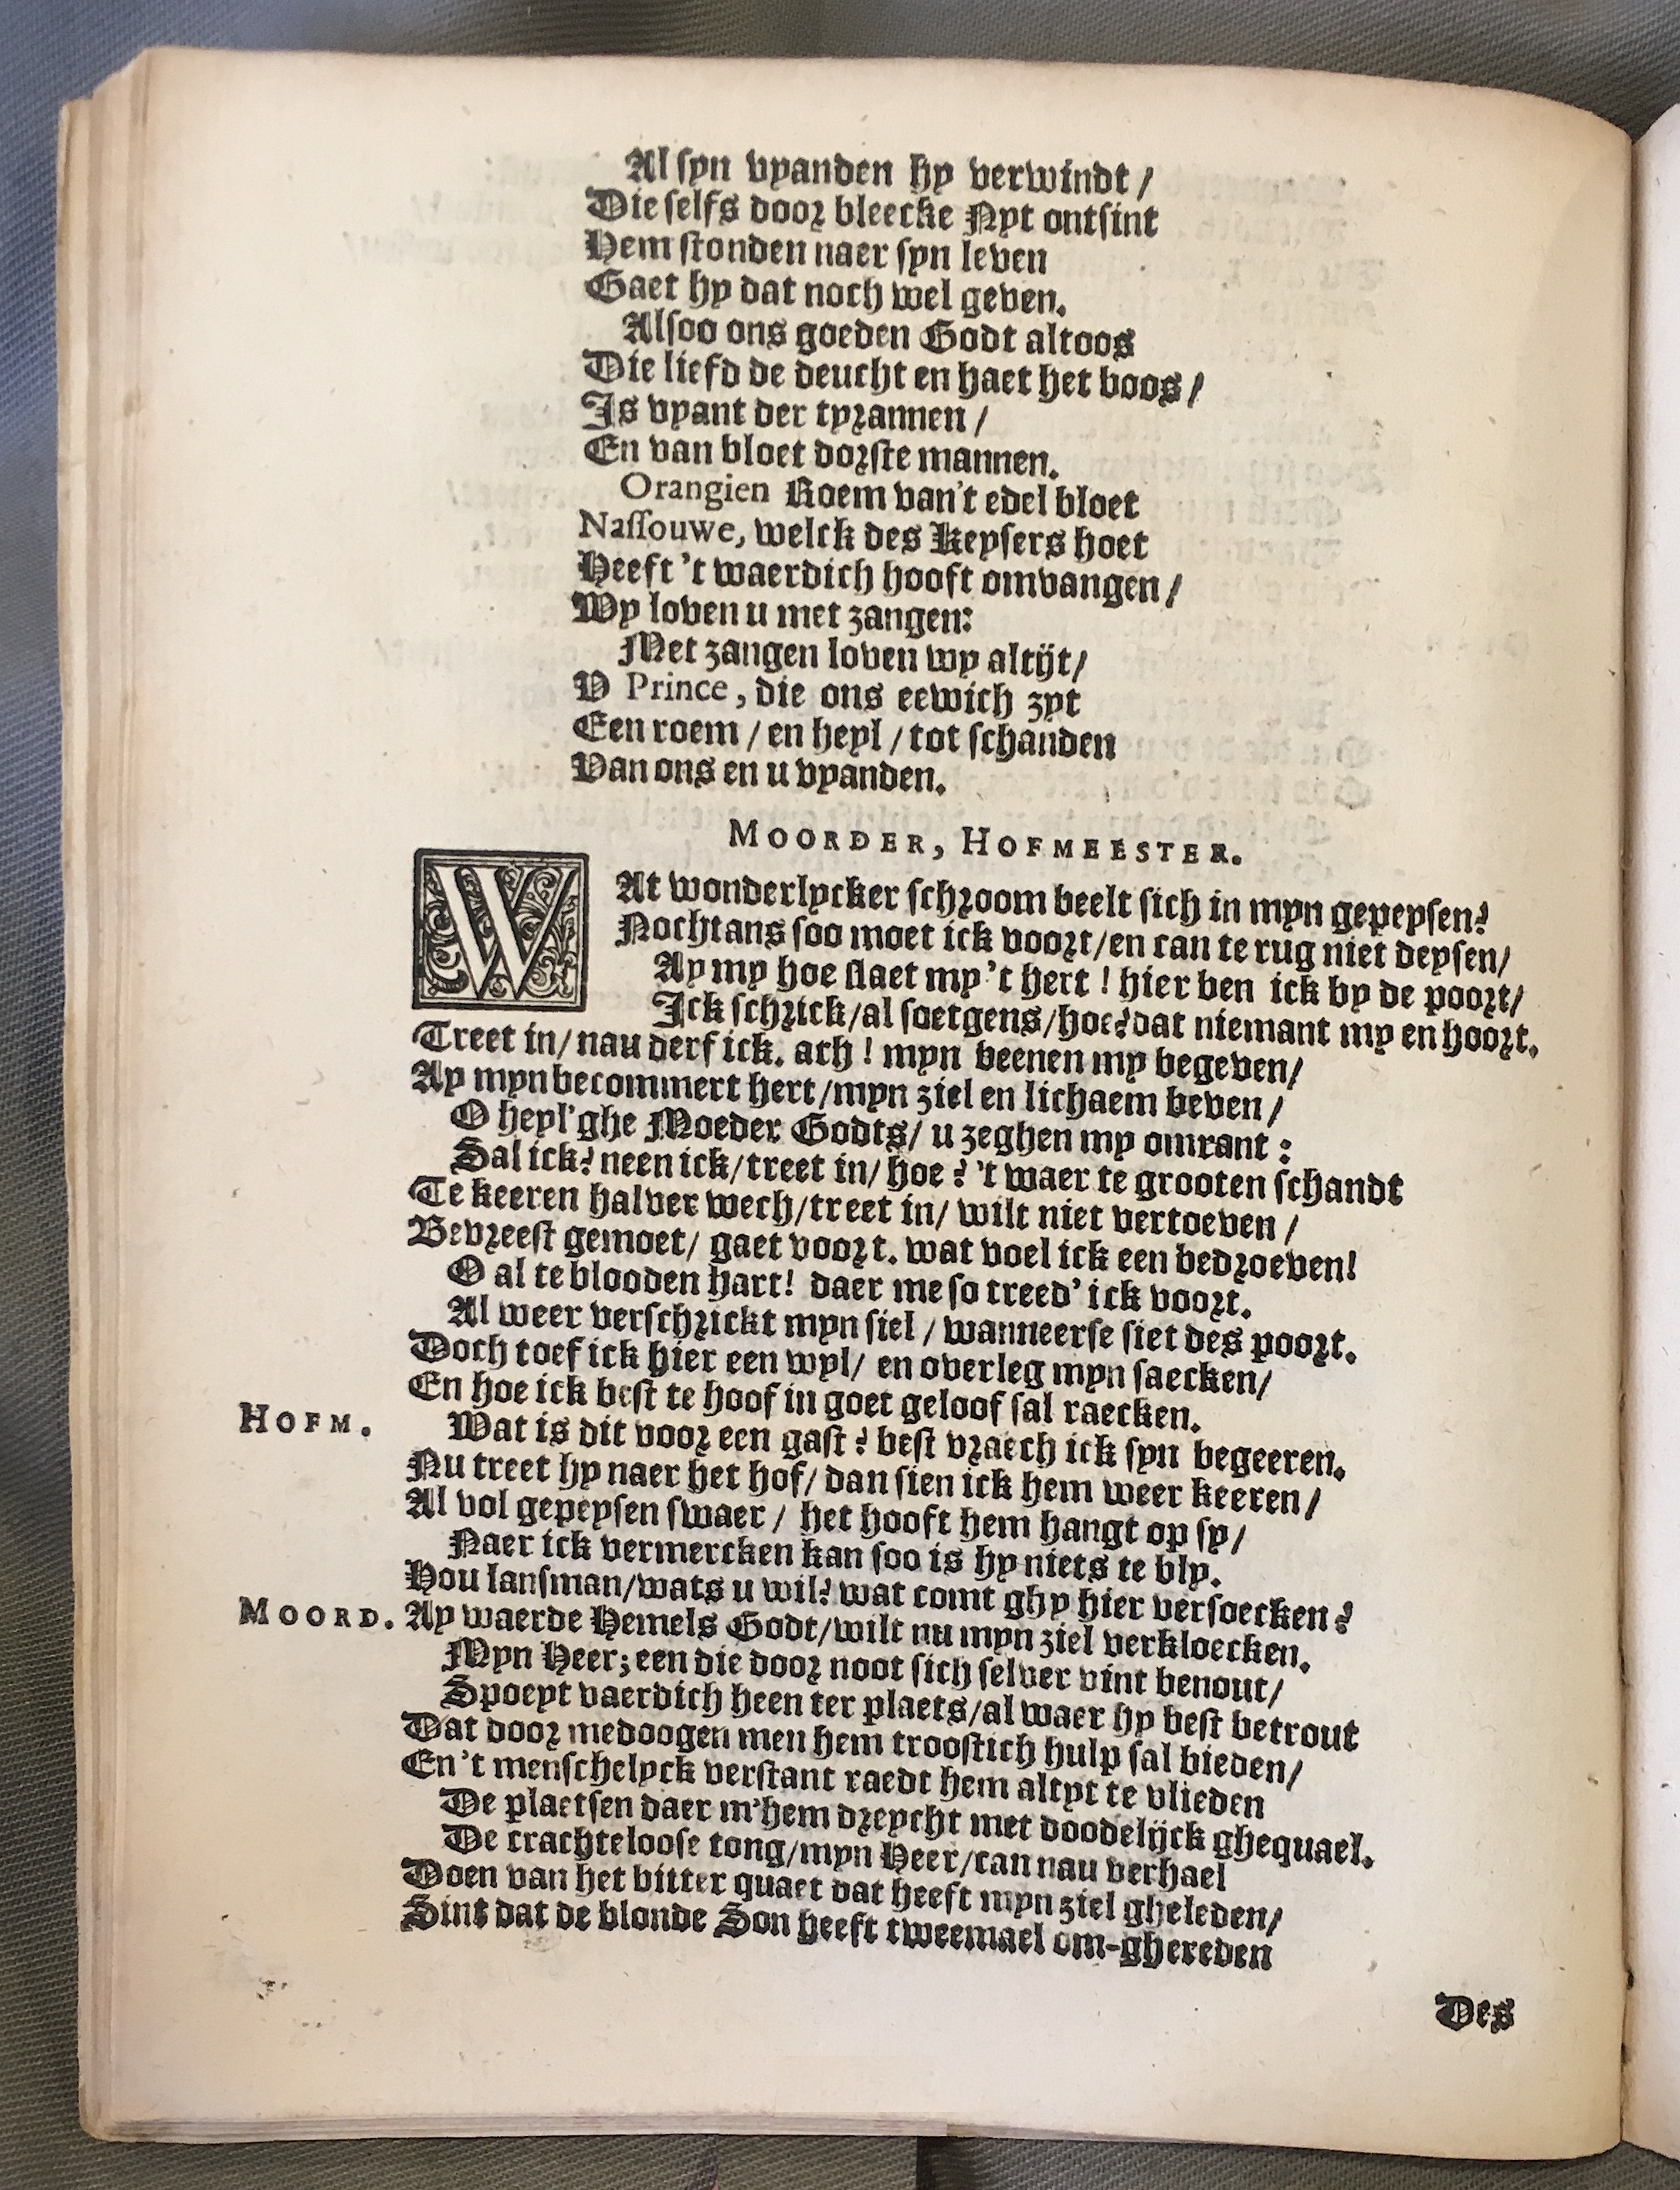 Al syn vyanden hy verwindt /
Die selfs door bleecke Nyt ontsint
Hem stonden naer syn leven
Gaet hy dat noch wel geven.
Alsoo ons goeden Godt altoos
Die liefd de deucht en haet het boos /
Is vyant der tyrannen /
En van bloet dorste mannen.
Orangien Roem van't edel bloet
Nassouwe, welck des Keysers hoet
Heeft 't waerdich hooft omvangen /
Wy loven u met zangen:
Met zangen loven wy altijt /
O Prince, die ons eewich zyt
Een roem / en heyl / tot schanden
Van ons en u vyanden.
MOORDER, HOFMEESTER.
WAt wonderlycker schroom beelt sich in myn gepeysen?
Nochtans soo moet ick voort / en can te rug niet deysen /
Ay my hoe slaet my 't hert ! hier ben ick by de poort /
Ick schrick / al soetgens / hoe? dat niemant my en hoort.
Treet in / nau derf ick. ach ! myn beenen my begeven /
Ay myn becommert hert / myn ziel en lichaem beven /
O heyl'ghe Moeder Godts / u zeghen my omrant :
Sal ick? neen ick / treet in / hoe ? 't waer te grooten schandt
Te keeren halver wech / treet in / wilt niet vertoeven /
Bevreest gemoet / gaet voort. wat voel ick een bedroeven!
O al te blooden hart! daer me so treed' ick voort.
Al weer verschrickt myn siel / wanneerse siet des poort.
Doch toef ick hier een wyl / en overleg myn saecken /
En hoe ick best te hoof in goet geloof sal raecken.
HOFM. Wat is dit voor een gast ? best vraech ick syn begeeren.
Nu treet hy naer het hof / dan sien ick hem weer keeren /
Al vol gepeysen swaer / het hooft hem hangt op sy /
Naer ick vermercken kan soo is hy niets te bly.
Hou lansman / wats u wil? wat comt ghy hier versoecken ?
MOORD. Ay waerde Hemels Godt / wilt nu myn ziel verkloecken.
Myn Heer; een die door noot sich selver vint benout /
Spoeyt vaerdich heen ter plaets / al waer hy best betrout
Dat door medoogen men hem troostich hulp sal bieden /
En 't menschelyck verstant raedt hem altyt te vlieden
De plaetsen daer m'hem dreycht met doodelijck ghequael.
De crachteloose tong / myn Heer / can nau verhael
Doen van het bitter quaet dat heeft myn ziel gheleden /
Sint dat de blonde Son heeft tweemael om-ghereden
Des